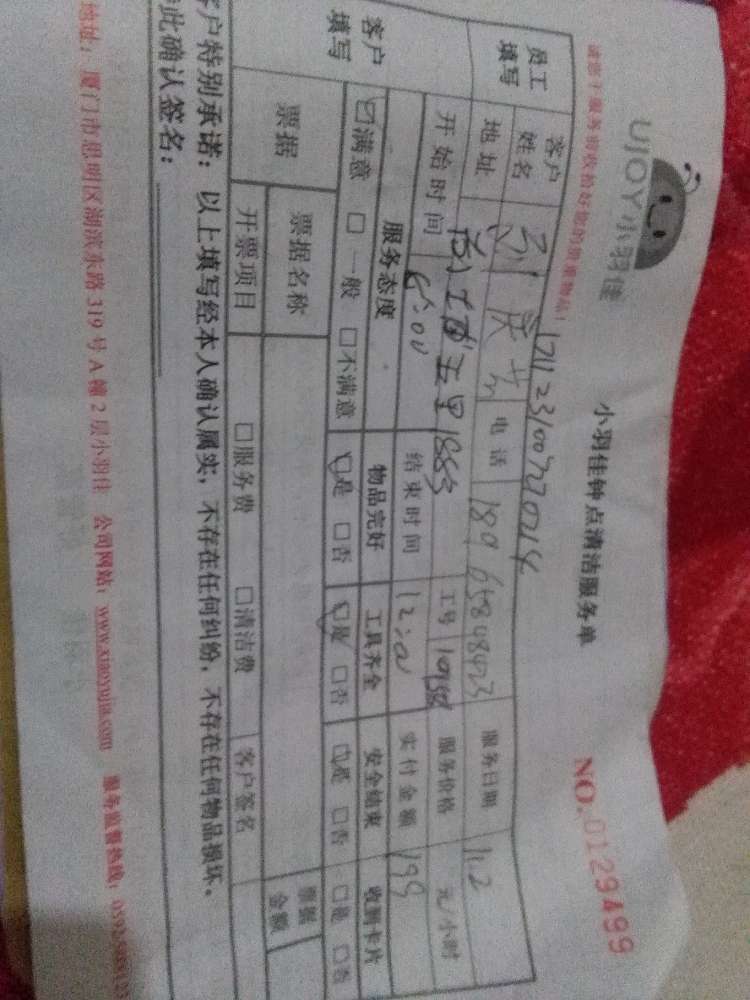 UJOY小羽佳
小羽佳钟点清洁服务单
NO.0129499
请您于服务前收拾好您的贵重物品！
171231007270214
员工填写 客户姓名 电话 服务日期 11.2
地址 工号 服务价格 元/小时
开始时间 结束时间 12:00 实付金额 199
客户填写 服务态度 物品完好 工具齐全 安全结束 收到卡片
☑满意 □一般 □不满意 ☑是 □否 ☑是 □否 ☑是 □否 □是 □否
票据 票据名称 票据金额
开票项目 □服务费 □清洁费 客户签名
客户特别承诺：以上填写经本人确认属实，不存在任何纠纷，不存在任何物品损坏。
特此确认签名：
地址：厦门市思明区湖滨东路319号A幢2层小羽佳 公司网站：www.xiaoyujia.com 服务监督热线：